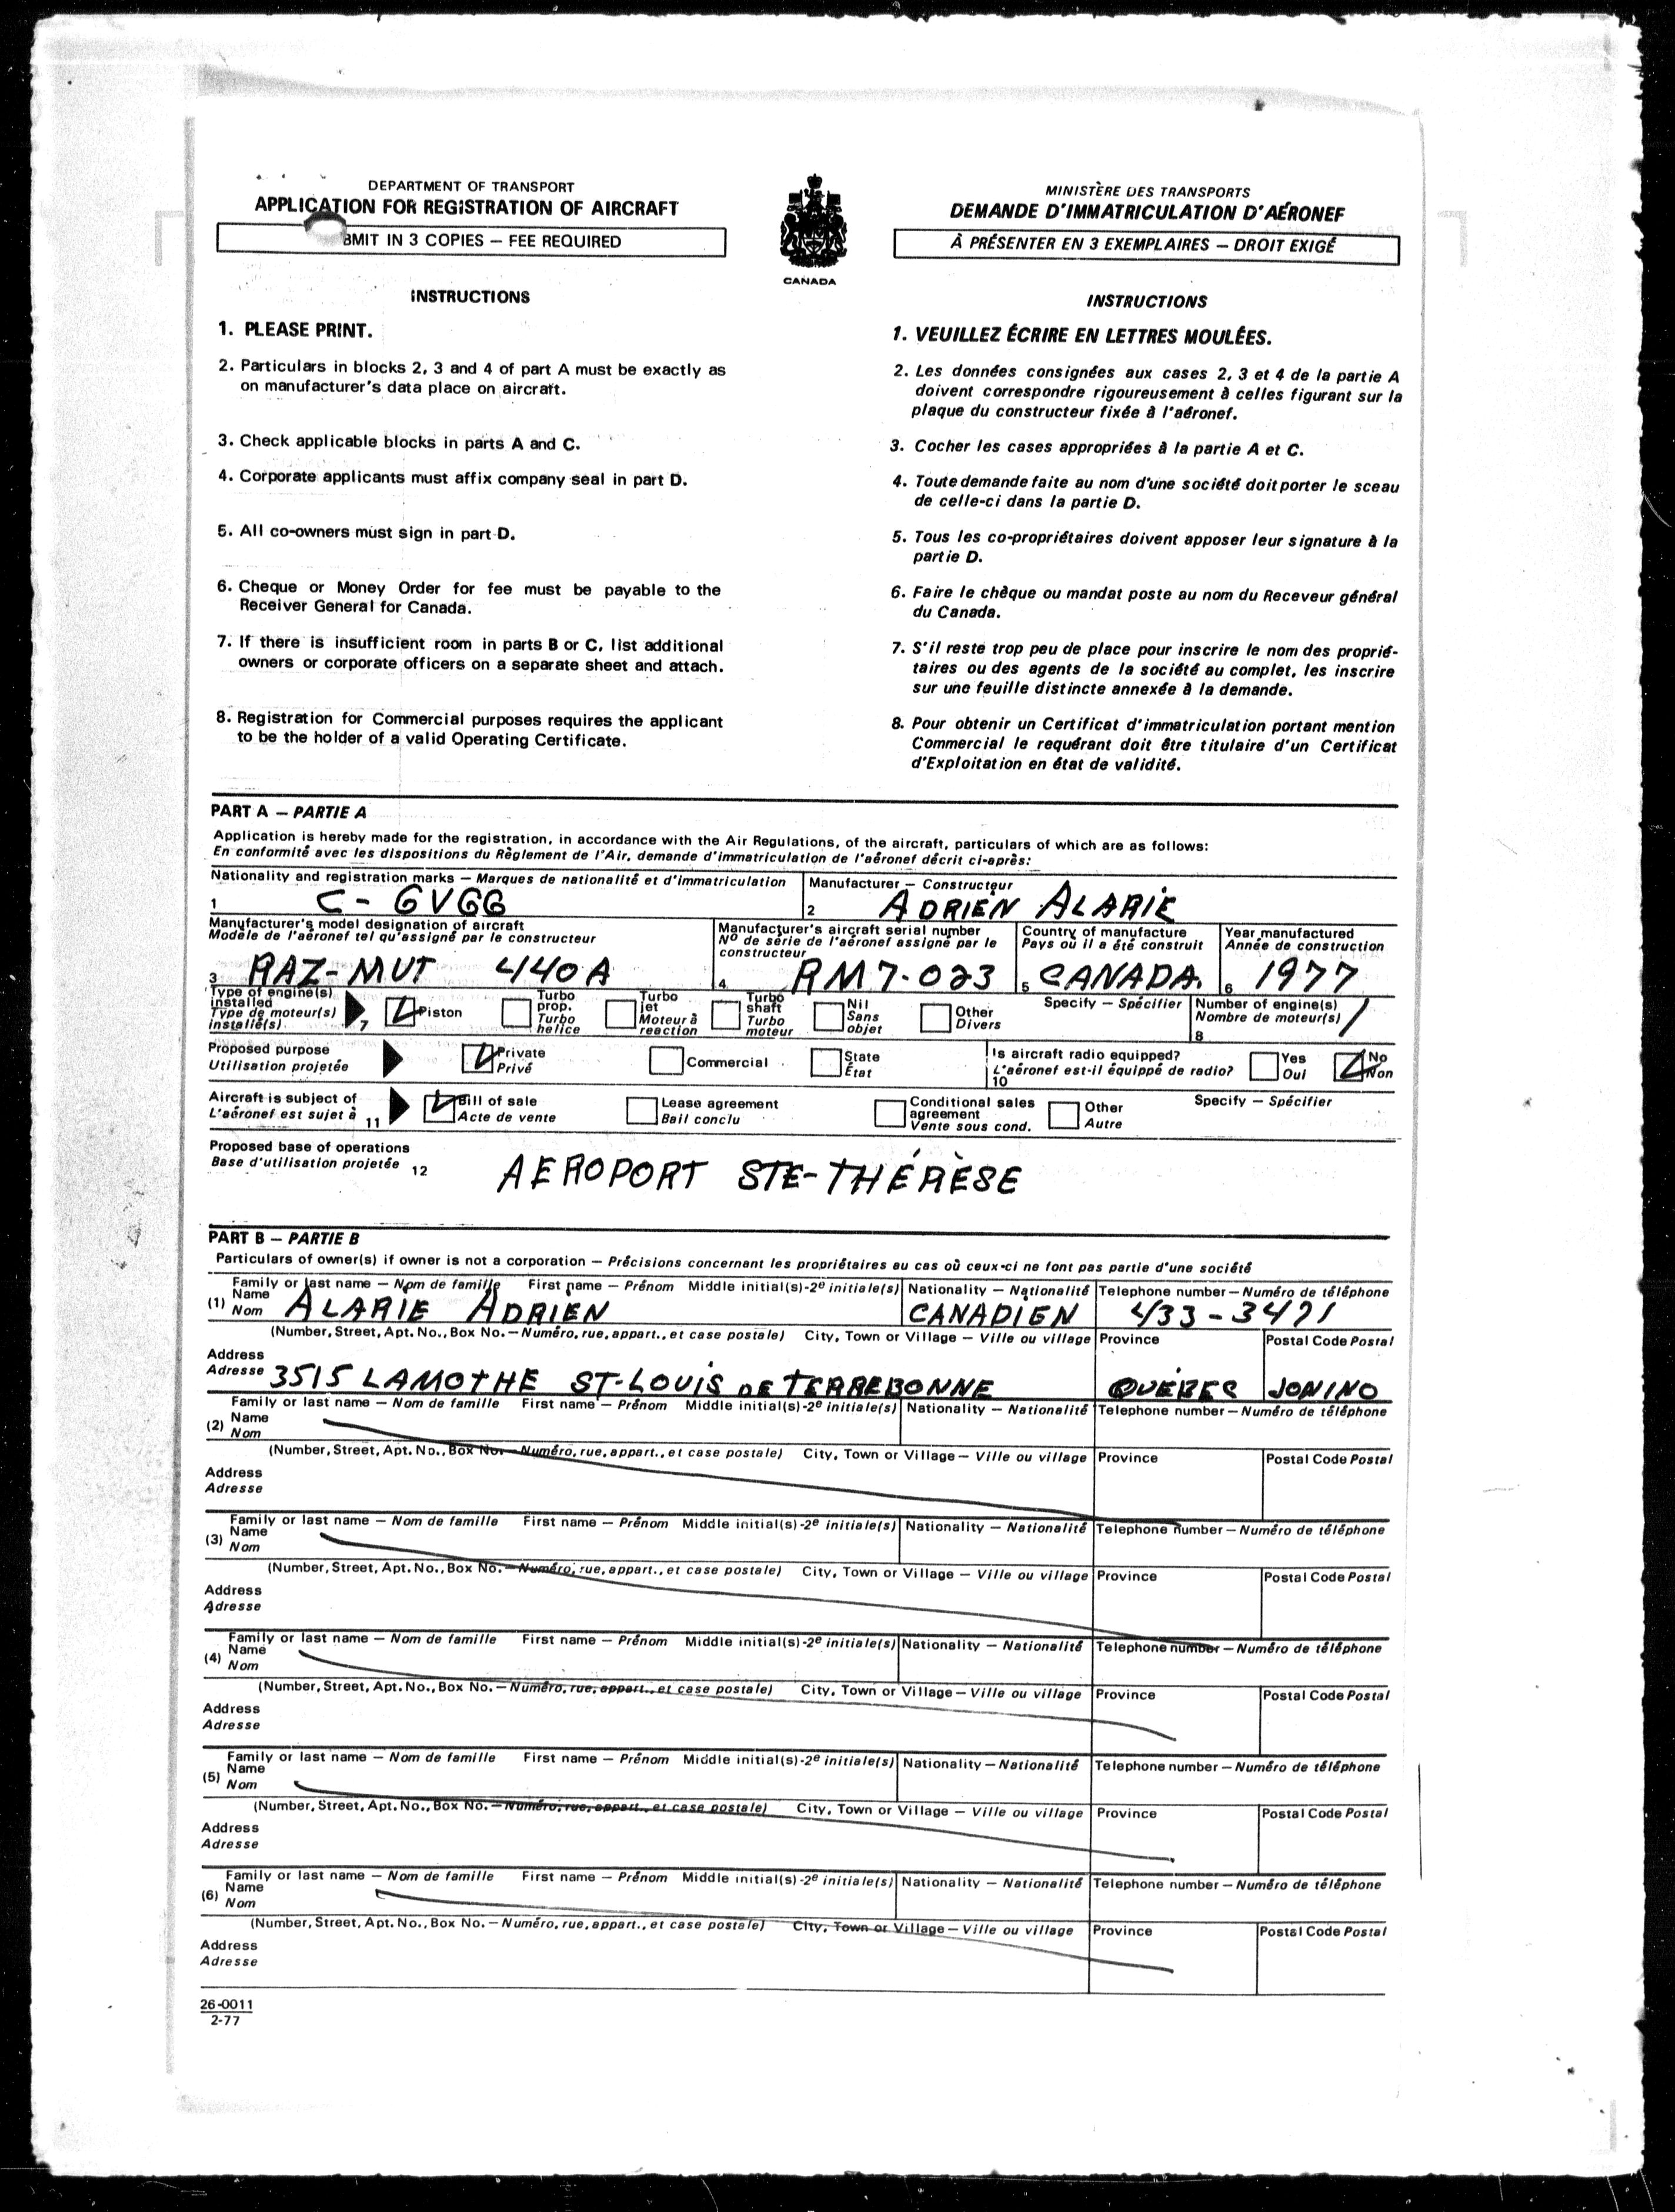 DEPARTMENT OF TRANSPORT
APPLICATION FOR REGISTRATION OF AIRCRAFT
BMIT IN 3 COPIES — FEE REQUIRED
CANADA
MINISTÈRE DES TRANSPORTS
DEMANDE D'IMMATRICULATION D'AÉRONEF
À PRÉSENTER EN 3 EXEMPLAIRES — DROIT EXIGÉ
INSTRUCTIONS
1. PLEASE PRINT.
2. Particulars in blocks 2, 3 and 4 of part A must be exactly as
on manufacturer's data place on aircraft.
3. Check applicable blocks in parts A and C.
4. Corporate applicants must affix company seal in part D.
5. All co-owners must sign in part D.
6. Cheque or Money Order for fee must be payable to the
Receiver General for Canada.
7. If there is insufficient room in parts B or C, list additional
owners or corporate officers on a separate sheet and attach.
8. Registration for Commercial purposes requires the applicant
to be the holder of a valid Operating Certificate.
INSTRUCTIONS
1. VEUILLEZ ÉCRIRE EN LETTRES MOULÉES.
2. Les données consignées aux cases 2, 3 et 4 de la partie A
doivent correspondre rigoureusement à celles figurant sur la
plaque du constructeur fixée à l'aéronef.
3. Cocher les cases appropriées à la partie A et C.
4. Toute demande faite au nom d'une société doit porter le sceau
de celle-ci dans la partie D.
5. Tous les co-propriétaires doivent apposer leur signature à la
partie D.
6. Faire le chèque ou mandat poste au nom du Receveur général
du Canada.
7. S'il reste trop peu de place pour inscrire le nom des proprié-
taires ou des agents de la société au complet, les inscrire
sur une feuille distincte annexée à la demande.
8. Pour obtenir un Certificat d'immatriculation portant mention
Commercial le requérant doit être titulaire d'un Certificat
d'Exploitation en état de validité.
PART A — PARTIE A
Application is hereby made for the registration, in accordance with the Air Regulations, of the aircraft, particulars of which are as follows:
En conformité avec les dispositions du Règlement de l'Air, demande d'immatriculation de l'aéronef décrit ci-après:
Nationality and registration marks — Marques de nationalité et d'immatriculation
1 C - GVGG
Manufacturer — Constructeur
2 ADRIEN ALARIE
Manufacturer's model designation of aircraft
Modèle de l'aéronef tel qu'assigné par le constructeur
3 RAZ-MUT 440A
Manufacturer's aircraft serial number
Nº de série de l'aéronef assigné par le
constructeur
4 RM7-023
Country of manufacture
Pays où il a été construit
5 CANADA.
Year manufactured
Année de construction
6 1977
Type of engine(s)
installed
Type de moteur(s)
installé(s) 7
Piston
Turbo
prop.
Turbo
hélice
Turbo
jet
Moteur à
reaction
Turbo
shaft
Turbo
moteur
Nil
Sans
objet
Other
Divers
Specify — Spécifier
Number of engine(s)
Nombre de moteur(s)
8 1
Proposed purpose
Utilisation projetée
Private
Privé
Commercial
State
État
Is aircraft radio equipped?
L'aéronef est-il équippé de radio?
10
Yes
Oui
No
Non
Aircraft is subject of
L'aéronef est sujet à 11
Bill of sale
Acte de vente
Lease agreement
Bail conclu
Conditional sales
agreement
Vente sous cond.
Other
Autre
Specify — Spécifier
Proposed base of operations
Base d'utilisation projetée 12
AEROPORT STE-THÉRÈSE
PART B — PARTIE B
Particulars of owner(s) if owner is not a corporation — Précisions concernant les propriétaires au cas où ceux-ci ne font pas partie d'une société
Family or last name — Nom de famille First name — Prénom Middle initial(s)-2e initiale(s) Nationality — Nationalité Telephone number — Numéro de téléphone
(1) Name
Nom ALARIE ADRIEN CANADIEN 433-3471
(Number, Street, Apt. No., Box No. — Numéro, rue, appart., et case postale) City, Town or Village — Ville ou village Province Postal Code Postal
Address
Adresse 3515 LAMOTHE ST-LOUIS DE TERREBONNE QUÉBEC J0N1N0
Family or last name — Nom de famille First name — Prénom Middle initial(s)-2e initiale(s) Nationality — Nationalité Telephone number — Numéro de téléphone
(2) Name
Nom
(Number, Street, Apt. No., Box No. — Numéro, rue, appart., et case postale) City, Town or Village — Ville ou village Province Postal Code Postal
Address
Adresse
Family or last name — Nom de famille First name — Prénom Middle initial(s)-2e initiale(s) Nationality — Nationalité Telephone number — Numéro de téléphone
(3) Name
Nom
(Number, Street, Apt. No., Box No. — Numéro, rue, appart., et case postale) City, Town or Village — Ville ou village Province Postal Code Postal
Address
Adresse
Family or last name — Nom de famille First name — Prénom Middle initial(s)-2e initiale(s) Nationality — Nationalité Telephone number — Numéro de téléphone
(4) Name
Nom
(Number, Street, Apt. No., Box No. — Numéro, rue, appart., et case postale) City, Town or Village — Ville ou village Province Postal Code Postal
Address
Adresse
Family or last name — Nom de famille First name — Prénom Middle initial(s)-2e initiale(s) Nationality — Nationalité Telephone number — Numéro de téléphone
(5) Name
Nom
(Number, Street, Apt. No., Box No. — Numéro, rue, appart., et case postale) City, Town or Village — Ville ou village Province Postal Code Postal
Address
Adresse
Family or last name — Nom de famille First name — Prénom Middle initial(s)-2e initiale(s) Nationality — Nationalité Telephone number — Numéro de téléphone
(6) Name
Nom
(Number, Street, Apt. No., Box No. — Numéro, rue, appart., et case postale) City, Town or Village — Ville ou village Province Postal Code Postal
Address
Adresse
26-0011
2-77